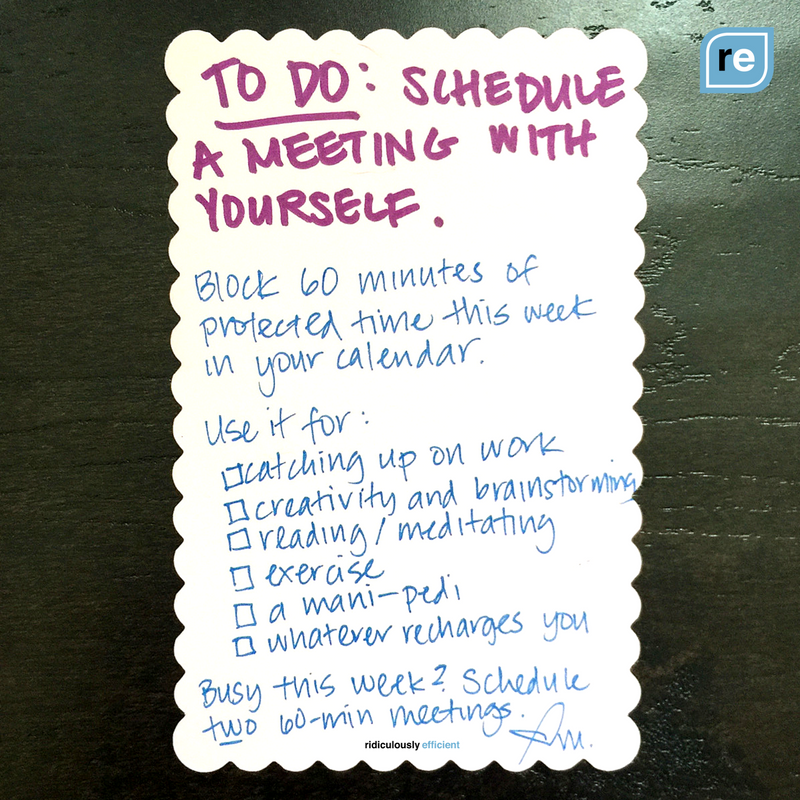 re
TO DO: SCHEDULE
A MEETING WITH
YOURSELF.
Block 60 minutes of
protected time this week
in your calendar.
Use it for:
catching up on work
creativity and brainstorming
reading / meditating
exercise
a mani-pedi
whatever recharges you
Busy this week? Schedule
two 60-min meetings.
ridiculously efficient